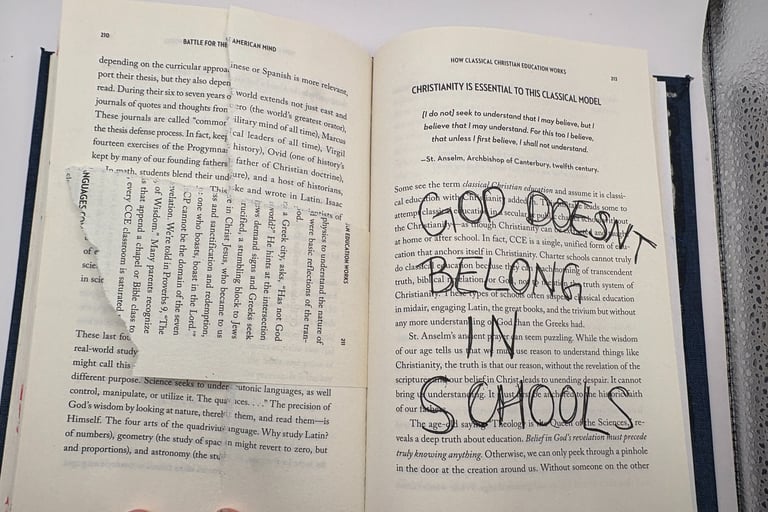 210
BATTLE FOR THE AMERICAN MIND
depending on the curricular approa
port their thesis, but they also depen
read. During their six to seven years o
journals of quotes and thoughts from
These journals are called "common
the thesis defense process. In fact, keep
fourteen exercises of the Progymna
kept by many of our founding fathers
In math, students blend their und
inese or Spanish is more relevant,
world extends not just east and
ero (the world's greatest orator),
ilitary mind of all time), Marcus
cal leaders of all time), Virgil
history), Ovid (one of history's
father of Christian doctrine),
ure), and a host of historians,
ke and wrote in Latin. Isaac
AN EDUCATION WORKS
211
physics to understand the nature of
were basic reflections of the tran-
od.
a Greek city, asks, "Has not God
world?" He hints at the intersection
ws demand signs and Greeks seek
rucified, a stumbling block to Jews
e in Christ Jesus, who became to us
ss and sanctification and redemption,
one who boasts, boast in the Lord.'"
CP cannot be the domain of the seven
velation. We're told in Proverbs 9, "The
of Wisdom." Many parents recognize
s that append a chapel or Bible class to
, every CCE classroom is saturated
NGUAGES
of e
scie
in scie
These last fou
real-world study
might call this
different purpose. Science seeks to under
control, manipulate, or utilize it. The qua
God's wisdom by looking at nature, thereb
Himself. The four arts of the quadrivi
of numbers), geometry (the study of spac
and proportions), and astronomy (the stu
utonic languages, as well
ices. . . ." The precision of
them, and read them—is
anguage. Why study Latin?
n might revert to zero, but
HOW CLASSICAL CHRISTIAN EDUCATION WORKS
213
CHRISTIANITY IS ESSENTIAL TO THIS CLASSICAL MODEL
[I do not] seek to understand that I may believe, but I
believe that I may understand. For this too I believe,
that unless I first believe, I shall not understand.
—St. Anselm, Archbishop of Canterbury, twelfth century.
Some see the term classical Christian education and assume it is classi-
cal education with Christianity added some to
attempt classical education secular
the Chr as though Christianity can
at home or after school. In fact, CCE is a single, unified form of edu-
cation that anchors itself in Christianity. Charter schools cannot truly
do classical education because of transcendent
truth, biblical or God truth system of
Christianity. These types of schools often suspend classical education
in midair, engaging Latin, the great books, and the trivium but without
any more understanding of God than the Greeks had.
St. Anselm's ancient prayer can seem puzzling. While the wisdom
of our age tells us that we must use reason to understand things like
Christianity, the truth is that our reason, without the revelation of the
scripture our belief in Christ leads to unending despair. It cannot
bring us understanding. It must first be anchored to the historic faith
of our fathers.
The age-old saying "Theology is the Queen of the Sciences," re-
veals a deep truth about education. Belief in God's revelation must precede
truly knowing anything. Otherwise, we can only peek through a pinhole
in the door at the creation around us. Without someone on the other
GOD DOESN'T
BELONG
IN
SCHOOLS